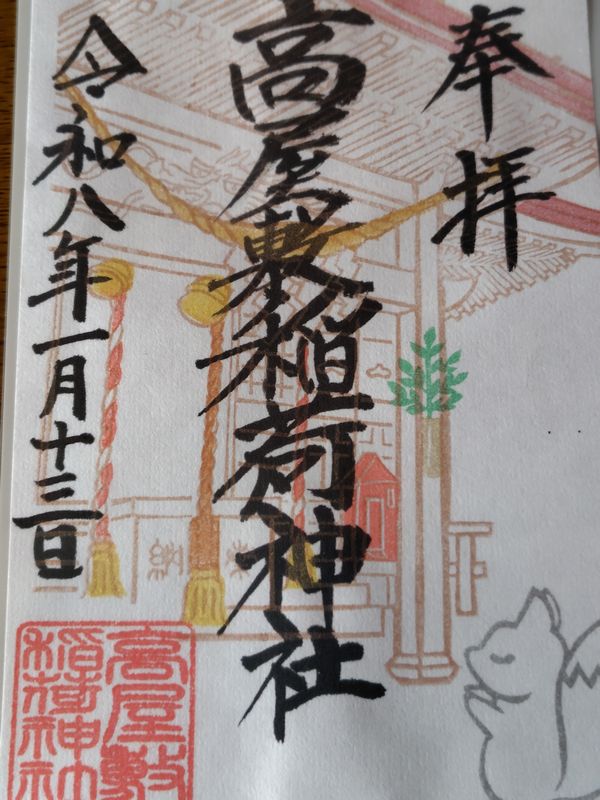 奉拝
高屋敷稲荷神社
令和八年一月十三日
高屋敷
稲荷神社
奉納